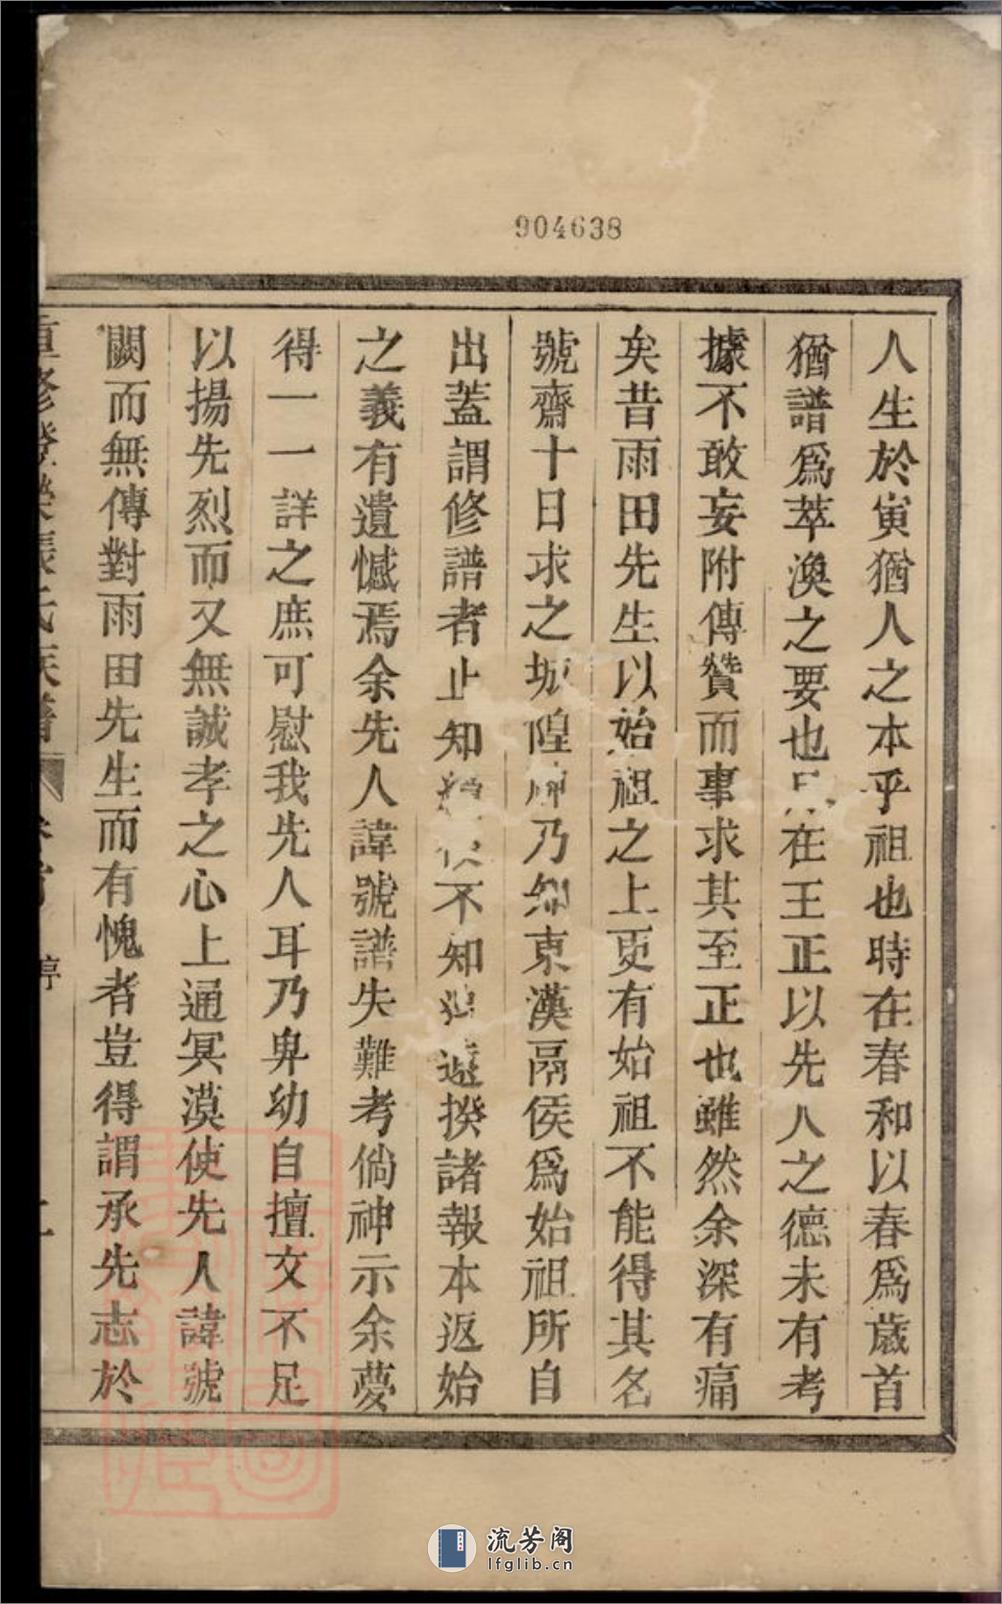 904638
人生於寅猶人之本乎祖也時在春和以春爲歲首
猶譜爲萃渙之要也在王正以先人之德未有考
據不敢妄附傳贊而事求其至正也雖然余深有痛
矣昔雨田先生以始祖之上更有始祖不能得其名
號齋十日求之城隍廟乃知東漢鬲侯爲始祖所自
出蓋謂修譜者止知不知遠遊揆諸報本返始
之義有遺憾焉余先人諱號譜失難考倘神示余夢
得一一詳之庶可慰我先人耳乃卑幼自擅文不足
以揚先烈而又無誠孝之心上通冥漠使先人諱號
闕而無傳對雨田先生而有愧者豈得謂承先志於
重修張氏族譜 卷首
流芳阁
lfglib.cn